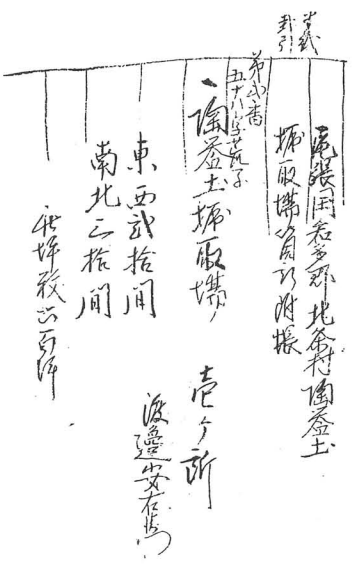 尾張国知多郡北条村陶器土
堀取場箇所附帳
第弐番
五十八字荒子
一陶器土堀取場 壱ヶ所
渡邉安右衛門
東西弐拾間
南北三拾間
此坪数六百坪